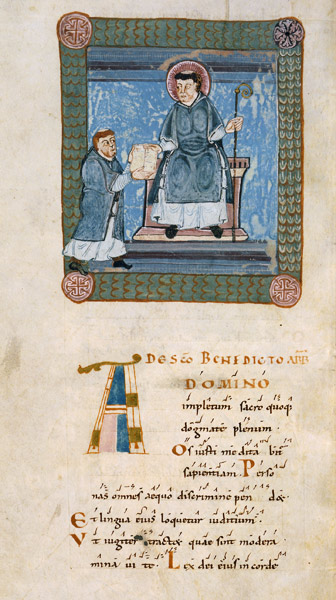 A DE SCO BENEDICTO ABB
DOMINO
impletum sacro quoq;
dogmate plenum.
Os iusti meditabit
sapientiam. Perso
nas omnes aequo discrimine pendet
Et lingua eius loquetur iudicium.
Ut iugiter tractet quae sint modera
mina vitę. Lex dei eius in corde